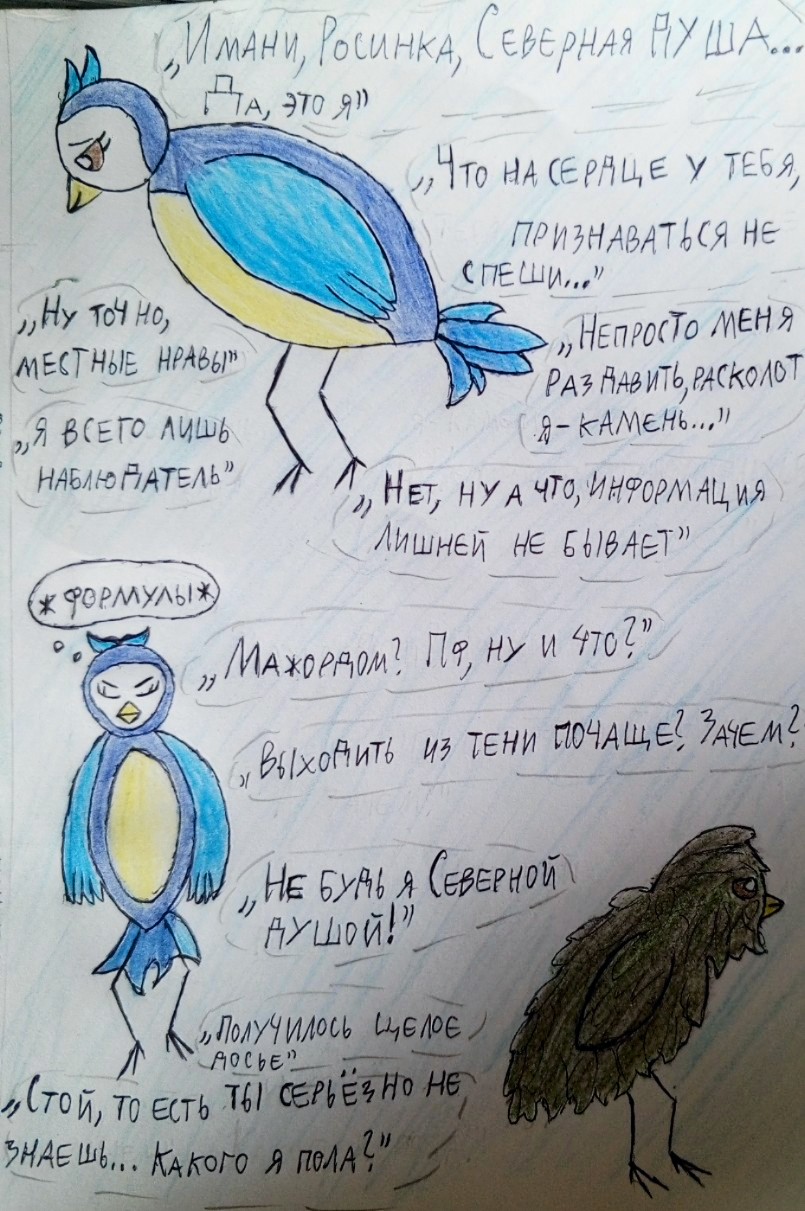 „Имани, Росинка, Северная душа...
Да, это я"
„Что на сердце у тебя,
признаваться не
спеши..."
„Ну точно,
местные нравы"
„Непросто меня
раздавить, расколот
я - камень..."
„Я всего лишь
наблюдатель"
„Нет, ну а что, информация
лишней не бывает"
*формулы*
„Мажордом? Пф, ну и что?"
„Выходить из тени почаще? Зачем?
„Не будь я Северной
душой!"
„Получилось щелое
досье"
„Стой, то есть ты серьёзно не
знаешь... какого я пола?"